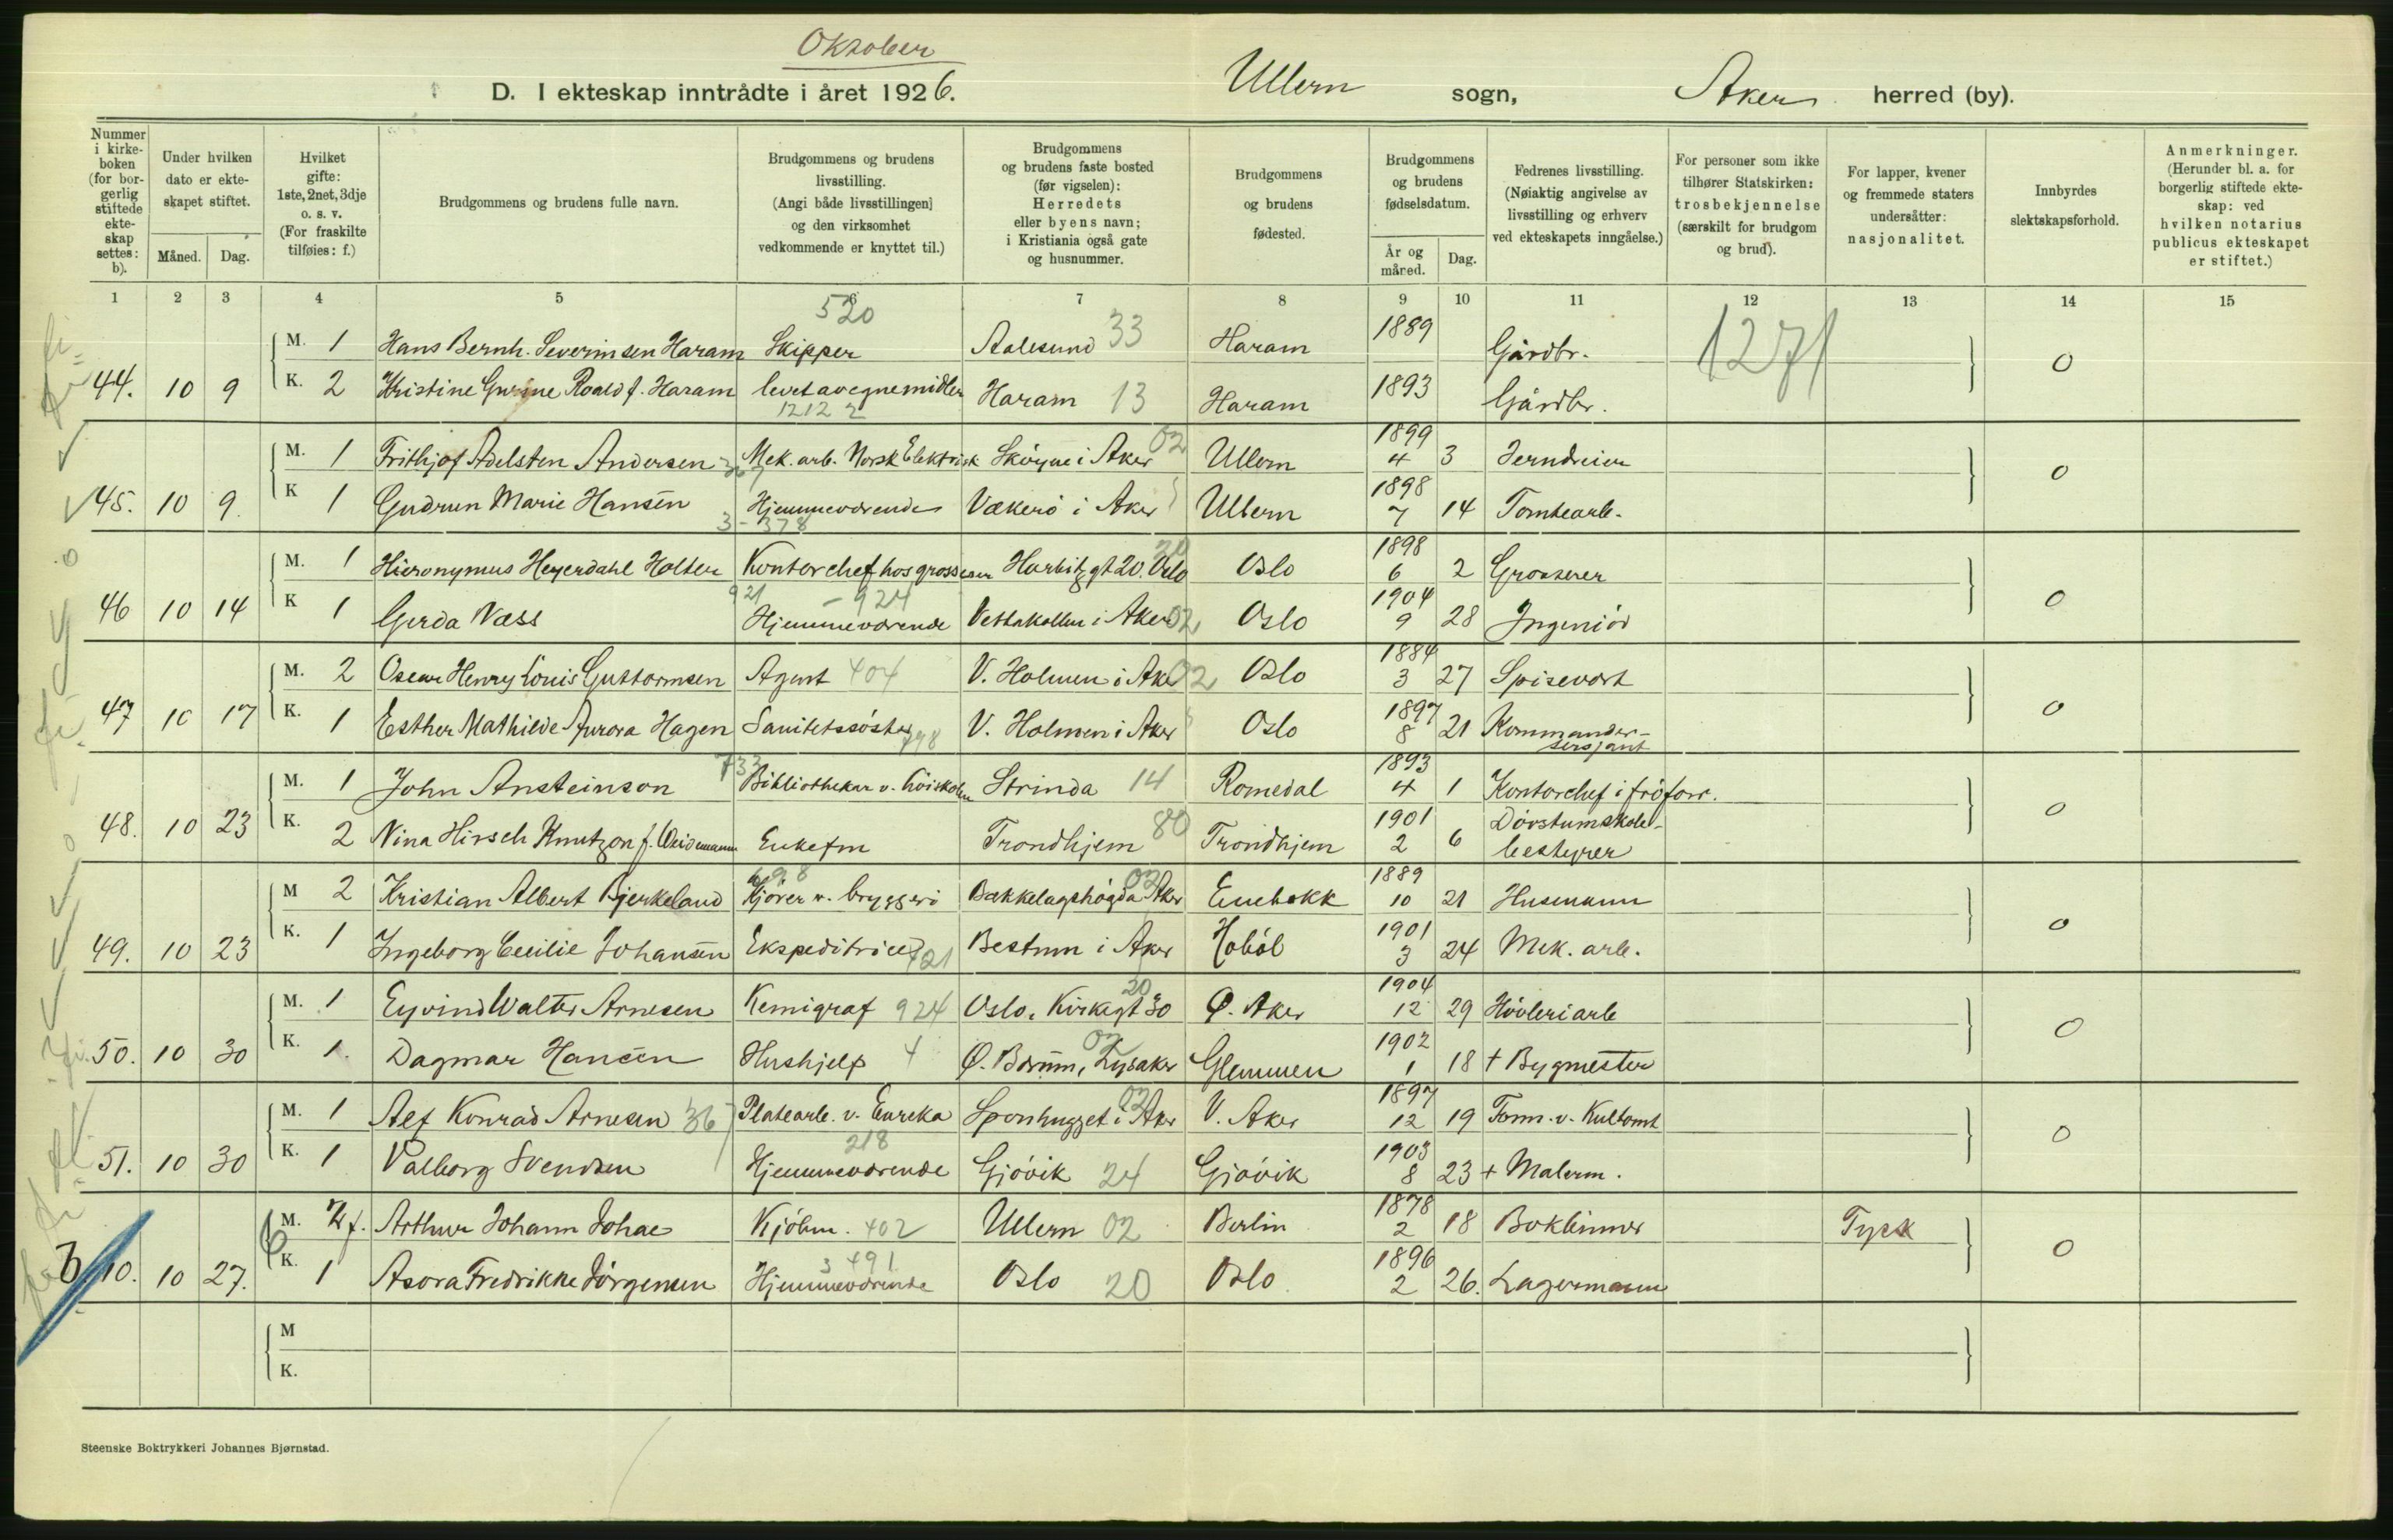 Oktober
D. I ekteskap inntrådte i året 1926. Ullern sogn, Aker herred (by).
Nummer i kirke-boken (for bor-gerlig stiftede ekte-skap settes: b).
Under hvilken dato er ekte-skapet stiftet.
Måned. Dag.
Hvilket gifte: 1ste, 2net, 3dje o. s. v. (For fraskilte tilføies: f.)
Brudgommens og brudens fulle navn.
Brudgommens og brudens livsstilling. (Angi både livsstillingen] og den virksomhet vedkommende er knyttet til.)
Brudgommens og brudens faste bosted (før vigselen): Herredets eller byens navn; i Kristiania også gate og husnummer.
Brudgommens og brudens fødested.
Brudgommens og brudens fødselsdatum.
År og måned. Dag.
Fedrenes livsstilling. (Nøiaktig angivelse av livsstilling og erhverv ved ekteskapets inngåelse.)
For personer som ikke tilhører Statskirken: trosbekjennelse (særskilt for brudgom og brud).
For lapper, kvener og fremmede staters undersåtter: nasjonalitet.
Innbyrdes slektskapsforhold.
Anmerkninger. (Herunder bl. a. for borgerlig stiftede ekte-skap: ved hvilken notarius publicus ekteskapet er stiftet.)
1 2 3 4 5 6 7 8 9 10 11 12 13 14 15
520
M. 1 Hans Bernh. Severinsen Haram Skipper Aalesund 33 Haram 1889 Gårdbr. 1271
44. 10 9 K. 2 Kristine Gurine Roald f. Haram levet av egne midler Haram 13 Haram 1893 Gårdbr. 0
1212 2
M. 1 Frithjof Adelsten Andersen 367 Mek. arb. Norsk Elektrisk Skøyne i Aker 02 Ullern 1899 4 3 Jerndreier
45. 10 9. K 1 Gudrun Marie Hansen Hjemmeværende Vækerø i Aker Ullern 1898 7 14 Tomtearb. 0
3-378
M. 1 Hieronymus Heyerdahl Holter Kontorchef hos grosserer Harbitzgt 20. Oslo 20 Oslo 1898 6 2 Grosserer
46 10 14 K 1 Gerda Næss 921 - 924 Hjemmeværende Vettakollen i Aker 02 Oslo 1904 9 28 Ingeniør 0
M. 2 Oscar Henry Louis Guttormsen Agent 404 V. Holmen i Aker 02 Oslo 1884 3 27 Spisevert
47 10 17 K. 1 Esther Mathilde Aurora Hagen Sanitetssøster 798 V. Holmen i Aker Oslo 1897 8 21 Kommander-sersjant 0
M. 1 John Ansteinson 733 Bibliothekar v. höiskolen Strinda 14 Romedal 1893 4 1 Kontorchef i frøforr.
48. 10 23 K. 2 Nina Hirsch Knutzon f. Weidemann Enkefru Trondhjem 80 Trondhjem 1901 2 6 Døvstumskole-bestyrer 0
M 2 Kristian Albert Bjerkeland 698 Kjører v. bryggeri Bækkelagshøgda Aker 02 Enebakk 1889 10 21 Husmann
49. 10 23 K. 1 Ingeborg Cecilie Johansen Ekspeditrice 721 Bestum i Aker Hobøl 1901 3 24 Mek. arb. 0
M. 1 Eyvind Walter Arnesen Kemigraf 924 Oslo, Kirkegt 30 20 Ø. Aker 1904 12 29 Høvleriarb
50. 10 30 K. 1. Dagmar Hansen Hushjelp 4 Ø. Bærum, Lysaker 02 Glemmen 1902 1 18 + Bygmester 0
M. 1 Alf Konrad Arnesen 367 Platearb. v. Eureka Sponhugget i Aker 02 V. Aker 1897 12 19 Form. v. Kultomt
51. 10 30 K. 1 Valborg Svendsen 218 Hjemmeværende Gjøvik 24 Gjøvik 1903 8 23 + Malerm. 0
M. 2 f. Arthur Johann Johae Kjøbm. 402 Ullern 02 Berlin 1878 2 18 Bokbinner Tysk
b 10. 10 27. K. 1 Asora Fredrikke Jørgensen 3 491 Hjemmeværende Oslo 20 Oslo 1896 2 26. Lagermann 0
M
K.
Steenske Boktrykkeri Johannes Bjørnstad.